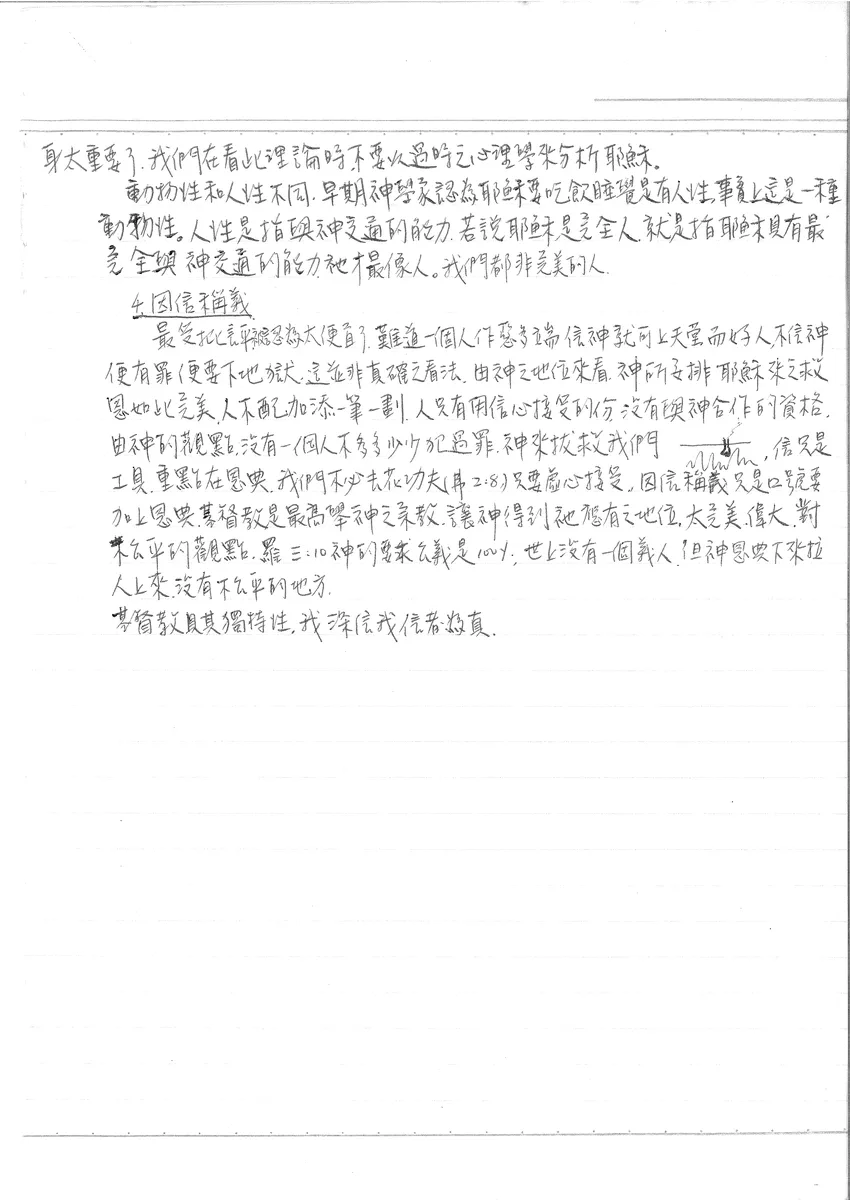 身太重要了.我們在看此理論時不要以過時之心理學來分析耶穌。
動物性和人性不同.早期神學家認為耶穌要吃飲睡覺是有人性,事實上這是一種
動物性。人性是指與神交通的能力.若說耶穌是完全人.就是指耶穌具有最
完全與神交通的能力.祂才最像人。我們都非完美的人.
4.因信稱義
最受批評被認為太便宜了.難道一個人作惡多端信神就可上天堂而好人不信神
便有罪便要下地獄.這並非真確之看法.由神之地位來看.神所安排耶穌來之救
恩如此完美,人不配加添一筆一劃.人只有用信心接受的份.沒有與神合作的資格.
由神的觀點.沒有一個人不多多少少犯過罪.神來拔救我們 ,信只是
工具.重點在恩典.我們不必去花功夫(弗2:8)只要虛心接受。因信稱義只是口號要
加上恩典.基督教是最高舉神之宗教.讓神得到祂應有之地位.太完美.偉大.對
不公平的觀點.羅三:10神的要求公義是100%,世上沒有一個義人.但神恩典下來拉
人上來.沒有不公平的地方.
基督教具其獨特性,我深信我信者為真.